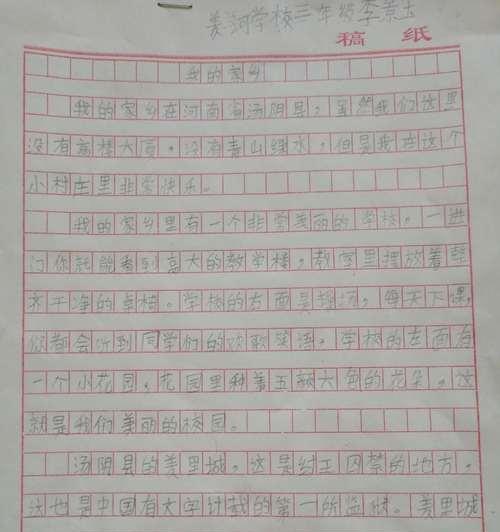 羑河学校三年级李景玉
稿 纸
我的家乡
我的家乡在河南省汤阴县，虽然我们这里
没有高楼大厦，没有青山绿水，但是我在这个
小村庄里非常快乐。
我的家乡里有一个非常美丽的学校，一进
门你就能看到高大的教学楼，教室里摆放着整
齐干净的桌椅。学校的右面是操场，每天下课，
你都会听到同学们的欢歌笑语。学校的左面有
一个小花园，花园里种着五颜六色的花朵，这
就是我们美丽的校园。
汤阴县的羑里城，这是纣王囚禁的地方，
这也是中国有文字记载的第一所监狱。羑里城